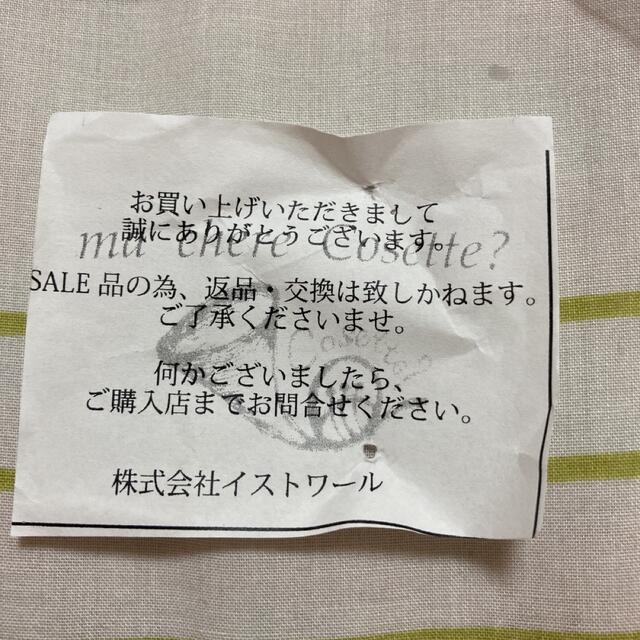 お買い上げいただきまして
誠にありがとうございます。
ma chère Cosette?
SALE 品の為、返品・交換は致しかねます。
ご了承くださいませ。
Cosette?
何かございましたら、
ご購入店までお問合せください。
株式会社イストワール